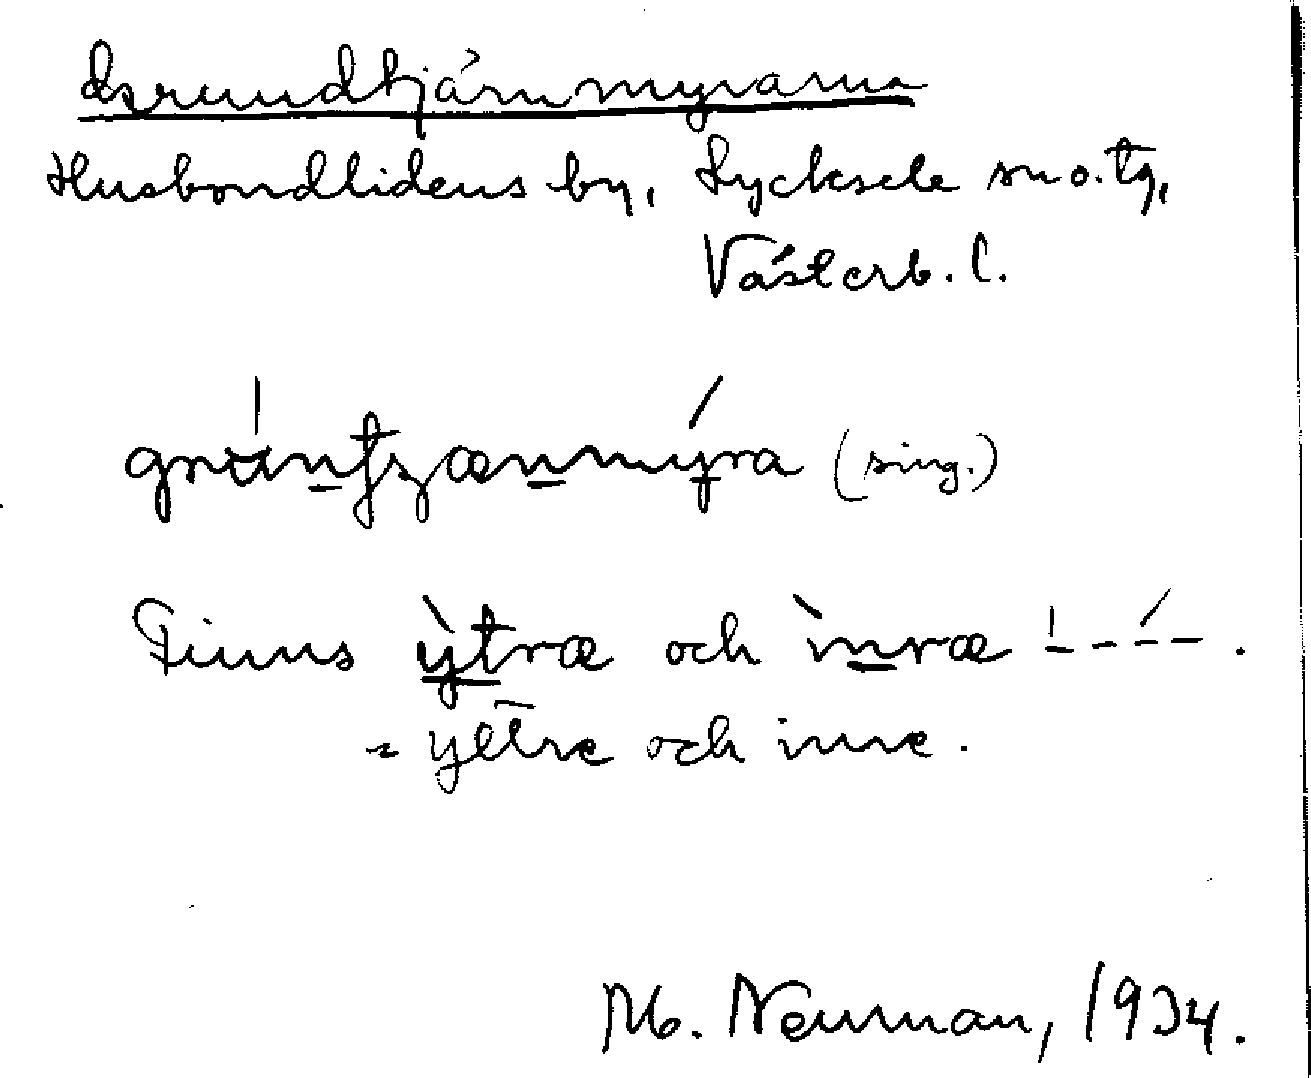 Grundtjärnmyrarna
Husbondlidens by, Lycksele sn o. tg,
Västerb. l.
(sing.)
Finns ỳtræ och ìnræ ˈ - - ́ - - .
= yttre och inre.
M. Neuman, 1934.